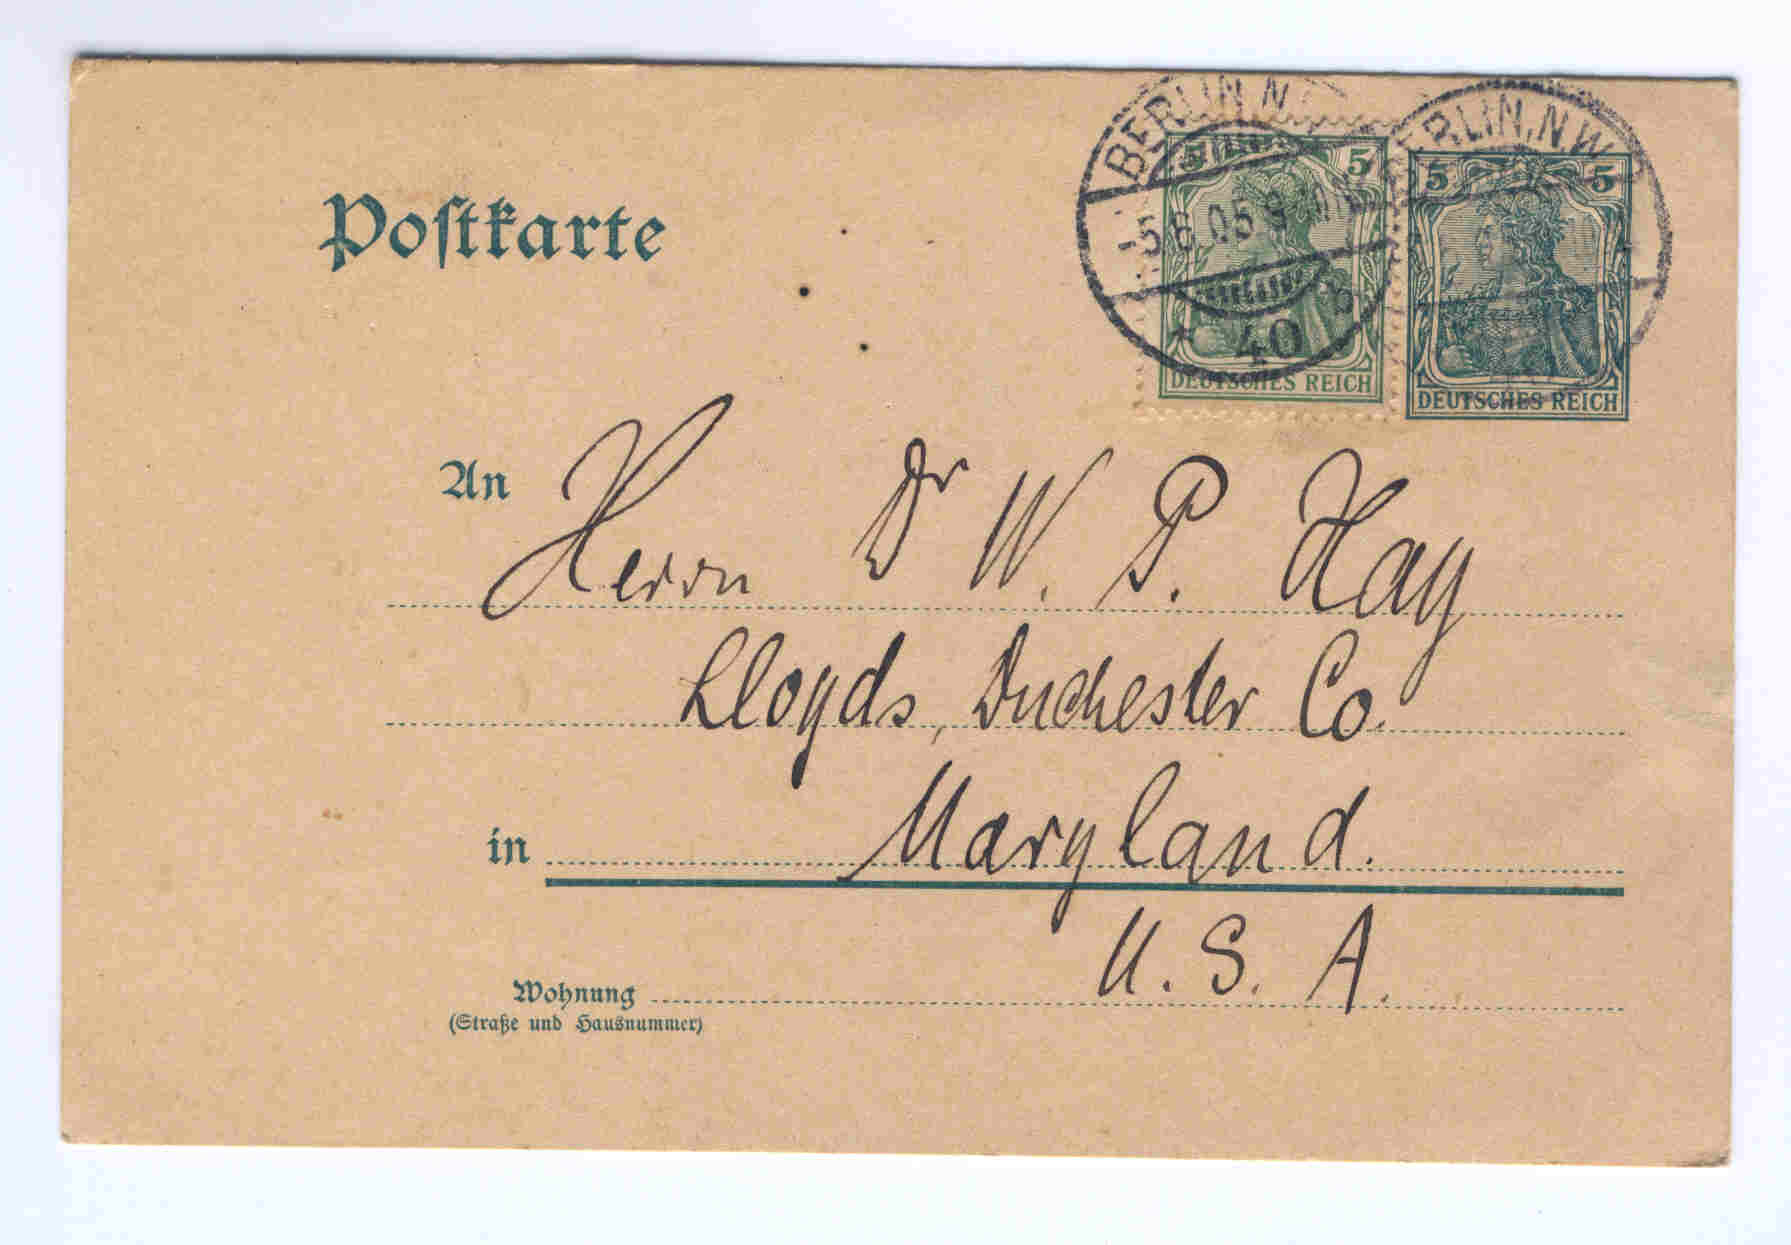 BERLIN, N.W.
5.6.05.9
40 b
5
DEUTSCHES REICH
5 5
DEUTSCHES REICH
Postkarte
An Herrn Dr W. P. Hay
Lloyds, Duchester Co.
in Maryland.
U. S. A.
Wohnung
(Straße und Hausnummer)